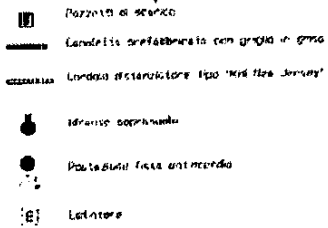 Pozzetti di scarico
Canaletta prefabbricata con griglia in ghisa
Cordolo distanziatore tipo "Mini New Jersey"
Idrante soprasuolo
Postazione fissa antincendio